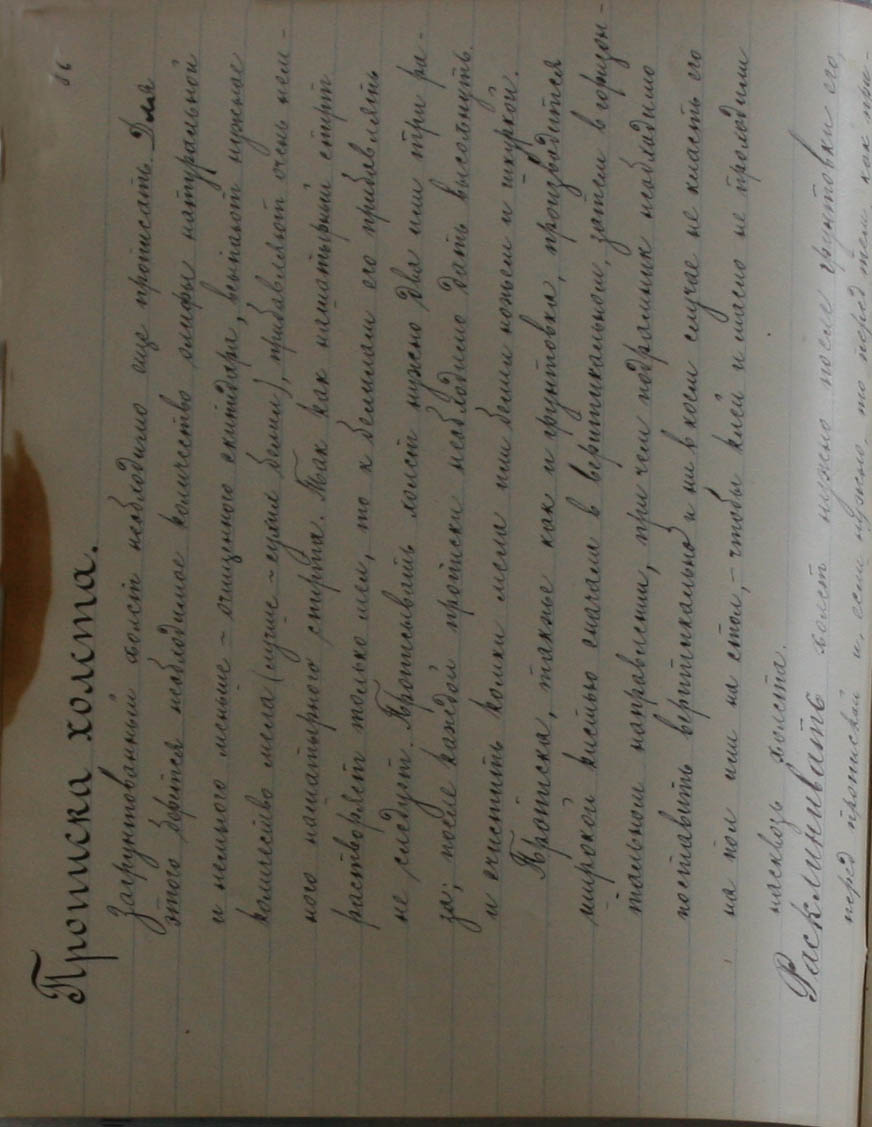 86
Прописка холста.
Загрунтованный холст необходимо еще прописать. Для
этого берится необходимое количество олифы натуральной
и немного меньше – очищенного скипидара, всыпают нужное
количество мела (лучше – сухие белил), прибавляют очень нем-
ного нашатырного спирта. Так как нашатырный спирт
растворяет только мел, то к белилам его прибавлять
не следует. Прописывать холст нужно два или три ра-
за; после каждой прописки необходимо дать высохнуть.
и счистить комки мела или белил ножем и шкуркой.
Прописка, также как и грунтовка, производится
широкой кистью сначала в вертикальном, затем в горизон-
тальном направлении, при чем подрамник необходимо
поставить вертикально и ни в коем случае не класть его
на пол или на стол, – чтобы клей и масло не проходили
насквозь холста.
Расклинивать холст нужно после грунтовки его,
перед пропиской и, если нужно, то перед тем, как при-